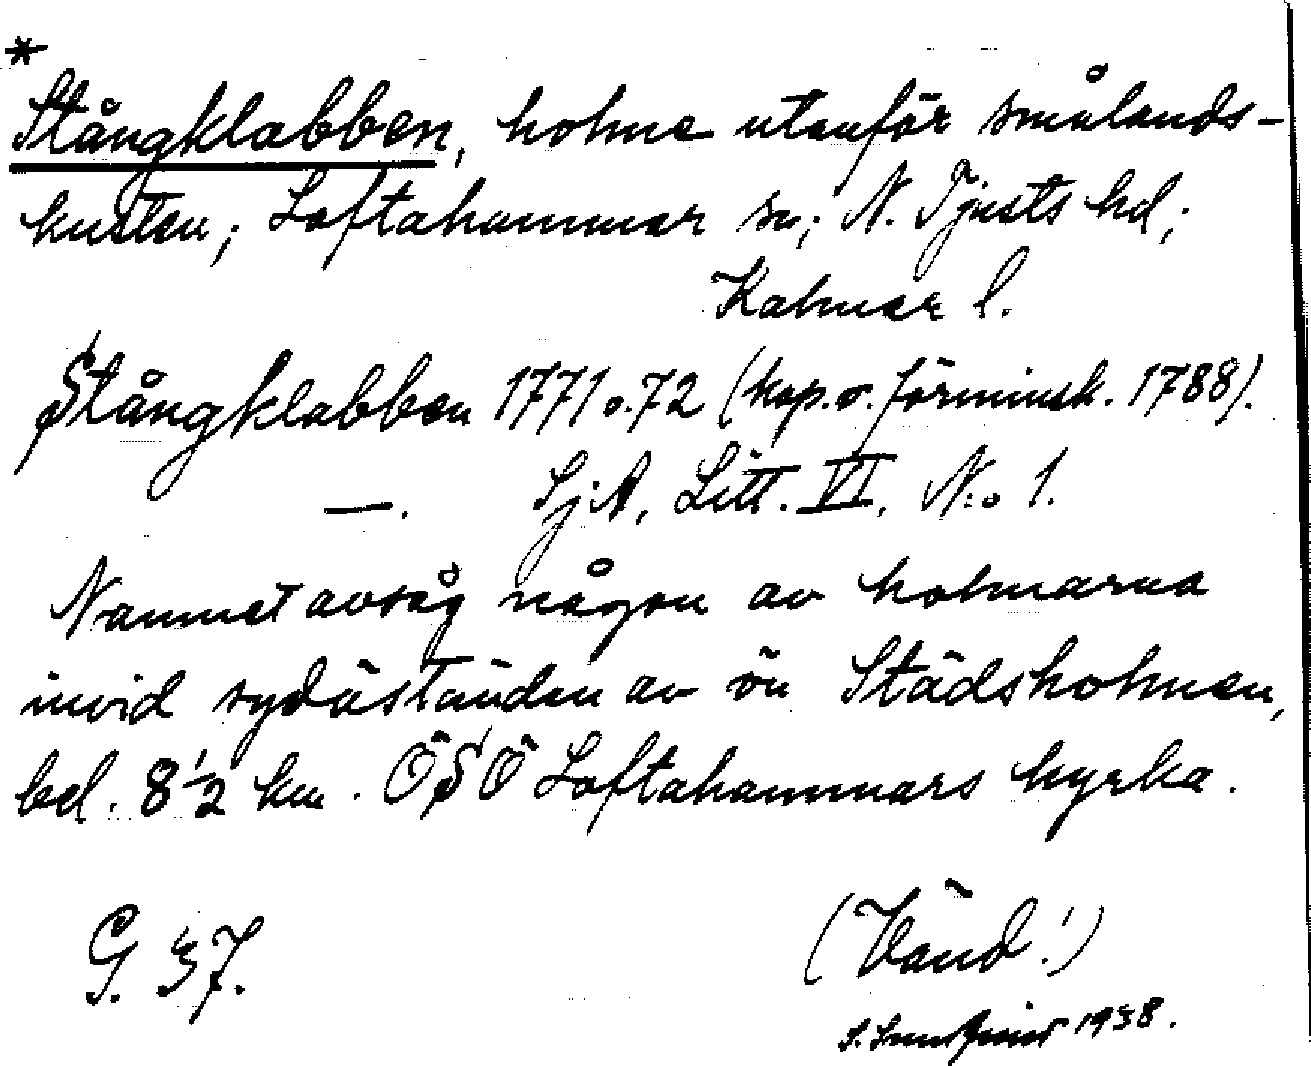 *
Stångklabben, holme utanför smålands-
kusten; Loftahammar sn; N. Tjusts hd;
Kalmar l.
Stångklabben 1771 o. 72 (kop. o. förminsk. 1788).
—. SjA, Litt. VI, N:o 1.
Namnet avsåg någon av holmarna
invid sydöständen av ön Städsholmen,
bel. 8 1/2 km. ÖSÖ Loftahammars kyrka.
G. 37.
(Vänd!)
1938.